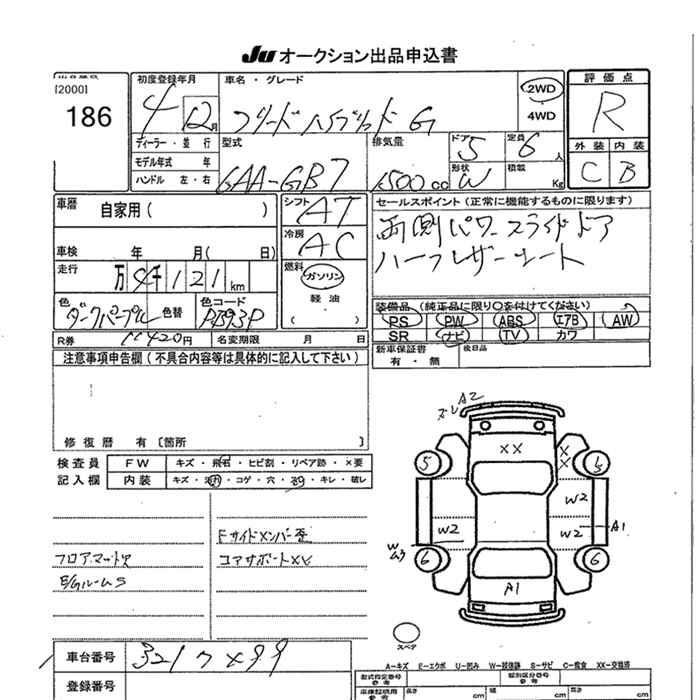 JU オークション出品申込書
[2000]
186
初度登録年月
4 12月
車名・グレード
フリードハイブリッド G
2WD
・
4WD
評価点
R
外装 内装
C B
ディーラー・並行
モデル年式 年
ハンドル 左・右
型式
6AA-GB7
排気量
1500cc
ドア
5
形状
W
定員
6人
積載
Kg
車歴
自家用( )
車検 年 月( 日)
走行
万 千121km
色
ダークパープル
色替
色コード
PB93P
シフト
AT
冷房
AC
燃料
ガソリン
軽油
( )
セールスポイント(正常に機能するものに限ります)
両側パワースライドドア
ハーフレザーシート
装備品(純正品に限り○を付けてください)
PS PW ABS エアB AW
SR ナビ TV カワ
R券 11420円
名変期限 月 日
新車保証書
有・無
後日品
注意事項申告欄(不具合内容等は具体的に記入して下さい)
修復歴 有〔箇所 〕
検査員
記入欄
FW キズ・飛石・ヒビ割・リペア跡・×要
内装 キズ・汚れ・コゲ・穴・ ・キレ・破レ
Fサイドメンバー歪
フロアマット欠
コアサポートXX
E/GルームS
A2
ズレ
XX
X
X
5
5
W2
W2
W2
A1
W
ム3
6
6
A1
スペア
A-キズ E-エクボ U-凹み W-補修跡 S-サビ C-腐食 XX-交換済
車台番号
321
登録番号
型式指定番号
参考
類別区分番号
参考
車庫証明用
参考
長さ cm
幅 cm
高さ cm